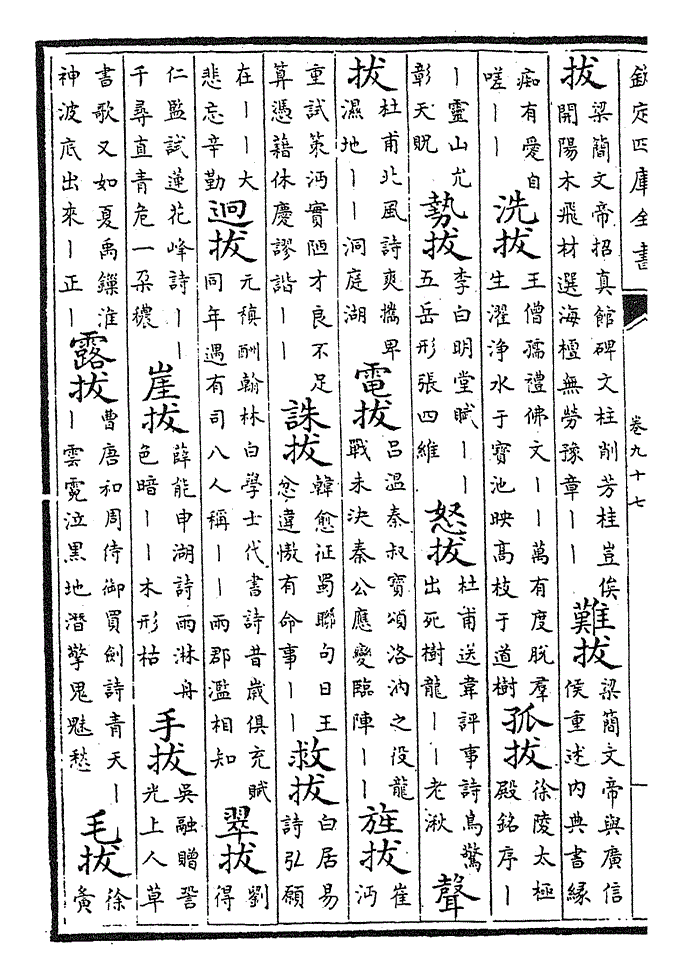 欽定四庫全書
卷九十七
拔梁簡文帝招真館碑文柱削芳桂豈俟開陽木飛材選海檀無勞豫章丨丨難拔梁簡文帝與廣信侯重述内典書緣
痴有愛自嗟丨丨洗拔王僧孺禮佛文丨丨萬有度脫羣生濯淨水于寶池映髙枝于道樹孤拔徐陵太極殿銘序丨
丨靈山尤彰天貺勢拔李白明堂賦丨丨五岳形張四維怒拔杜甫送韋評事詩鳥驚出死樹龍丨丨老湫聲
拔杜甫北風詩爽攜卑濕地丨丨洞庭湖電拔吕温秦叔寶頌洛汭之役龍戰未決秦公應變臨陣丨丨旌拔崔沔
重試策沔實陋才良不足算憑藉休慶謬諧丨丨誅拔韓愈征蜀聯句日王忿違慠有命事丨丨救拔白居易詩弘願
在丨丨大悲忘辛勤迥拔元稹酬翰林白學士代書詩昔歲俱充賦同年遇有司八人稱丨丨兩郡濫相知翠拔劉得
仁監試蓮花峰詩丨丨千尋直青危一朶穠崖拔薛能申湖詩雨淋舟色暗丨丨木形枯手拔吳融贈䛒光上人草
書歌又如夏禹鏁淮神波底出來丨正丨露拔曹唐和周侍御買劍詩青天丨丨雲霓泣黑地潛擎鬼魅愁毛拔徐黄